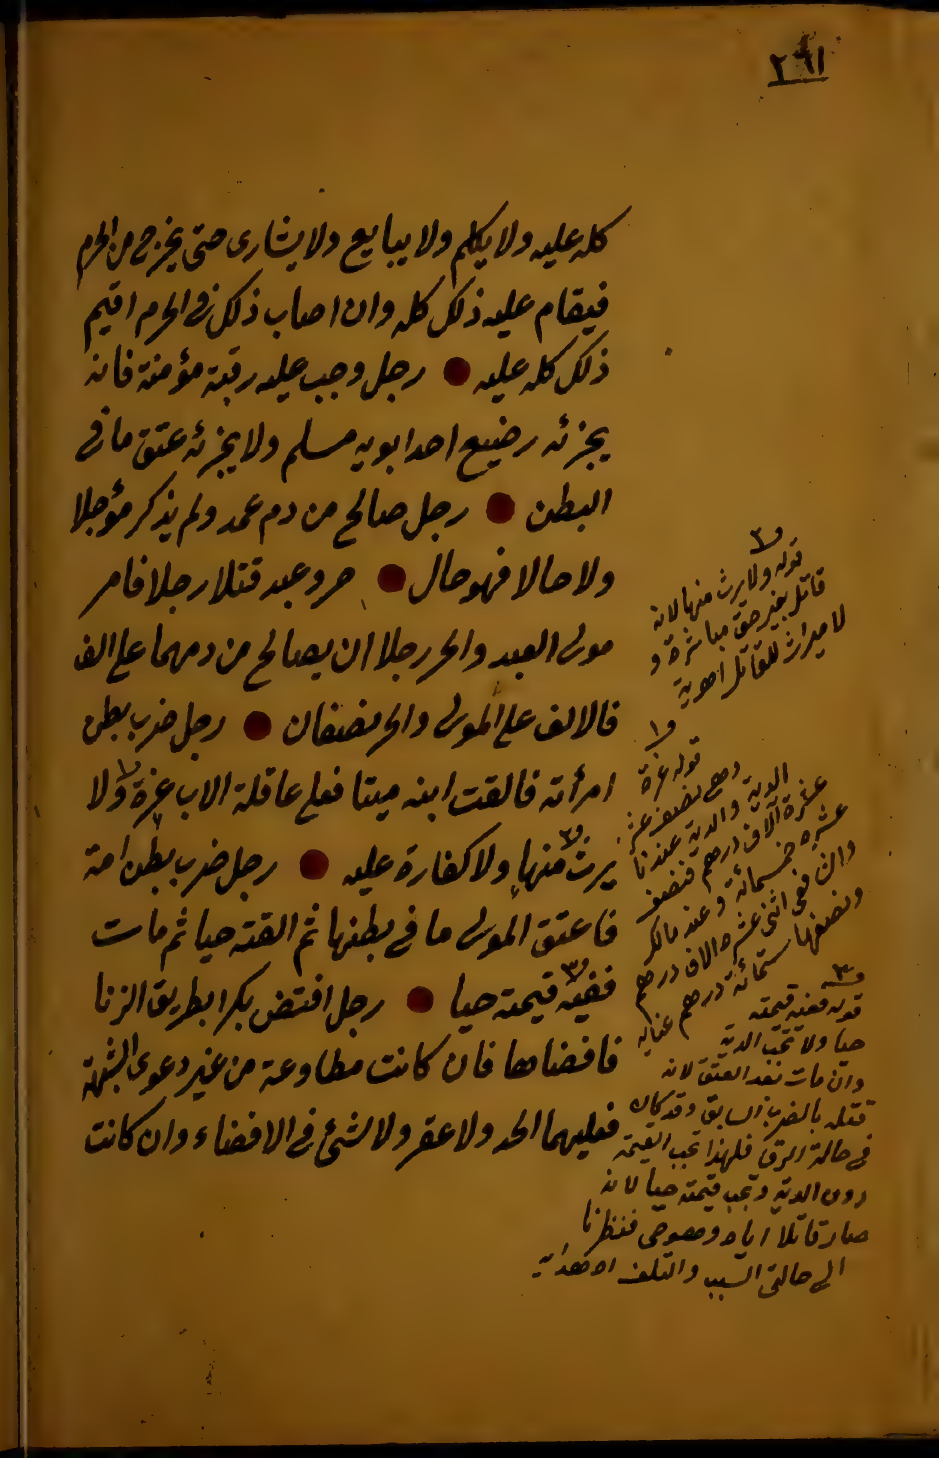 ٢٩١
كله عليه ولا يكلم ولا يبايع ولا يشارى حتى يخرج من الحرم
فيقام عليه ذلك كله وان اصاب ذلك فى الحرم اقيم
ذلك كله عليه ● رجل وجب عليه رقبة مؤمنة فانه
يجزئه رضيع احد ابويه مسلم ولا يجزئه عتق ما فى
البطن ● رجل صالح من دم عمد ولم يذكر مؤجلا
ولا حالا فهو حال ● حر وعبد قتلا رجلا فامر
مولى العبد والحر رجلا ان يصالح من دمهما على الف
فالالف على المولى والحر نصفان ● رجل ضرب بطن
امرأته فالقت ابنه ميتا فعلى عاقلة الاب غرة ولا
يرث منها ولا كفارة عليه ● رجل ضرب بطن امة
فاعتق المولى ما فى بطنها ثم القته حيا ثم مات
ففيه قيمته حيا ● رجل افتض بكرا بطريق الزنا
فافضاها فان كانت مطاوعة من غير دعوى الشبهة
فعليهما الحد ولا عقر ولا شئ فى الافضاء وان كانت
قوله ولا يرث منها لانه
قاتل بغير حق مباشرة و
لا ميراث للقاتل
قوله غرة
وهى نصف عشر
الدية والدية عندنا
عشرة آلاف درهم فنصف
عشره خمسمائة وعند مالك
اثنى عشره الاف درهم
ونصفها ستمائة درهم عنايه
قوله ففيه قيمته
حيا ولا تجب الدية
وان مات بعد العتق لانه
قتله بالضرب السابق وقد كان
فى حالة الرق فلهذا تجب القيمة
دون الدية وتجب قيمته حيا لانه
صار قاتلا اياه وهو حى فنظرنا
الى حالتى السبب والتلف اه هدايه